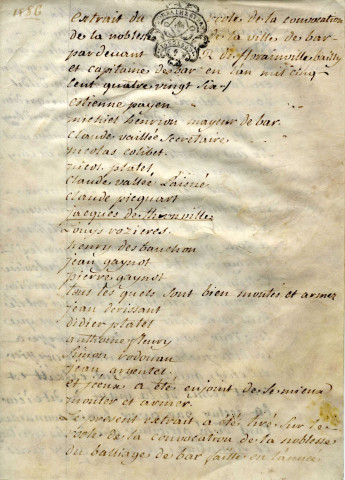 1586
extrait du role de la convocation
de la noblesse de la ville de bar
pardevant de florainville bailly
et capitaine de bar en lan mil cinq
cent quatre vingt six
estienne payen
michiel henrion mayeur de bar
claude vaillée secritaire
nicolas colibet
nicol platel
claude vallée Laisné
claude picquart
jacques de thernville
Louys rozieres
henry desbauchon
jean gaynot
pierre gaynot
tous les quels sont bien montés et armez
jean derissant
didier platel
anthoine fleury
simon vodouan
jean argentel
et iceux a été enjoint de se mieux
monter et armer
Le présent extrait a été tiré sur le
role de la convocation de la noblesse
du balliage de bar faitte en l'année